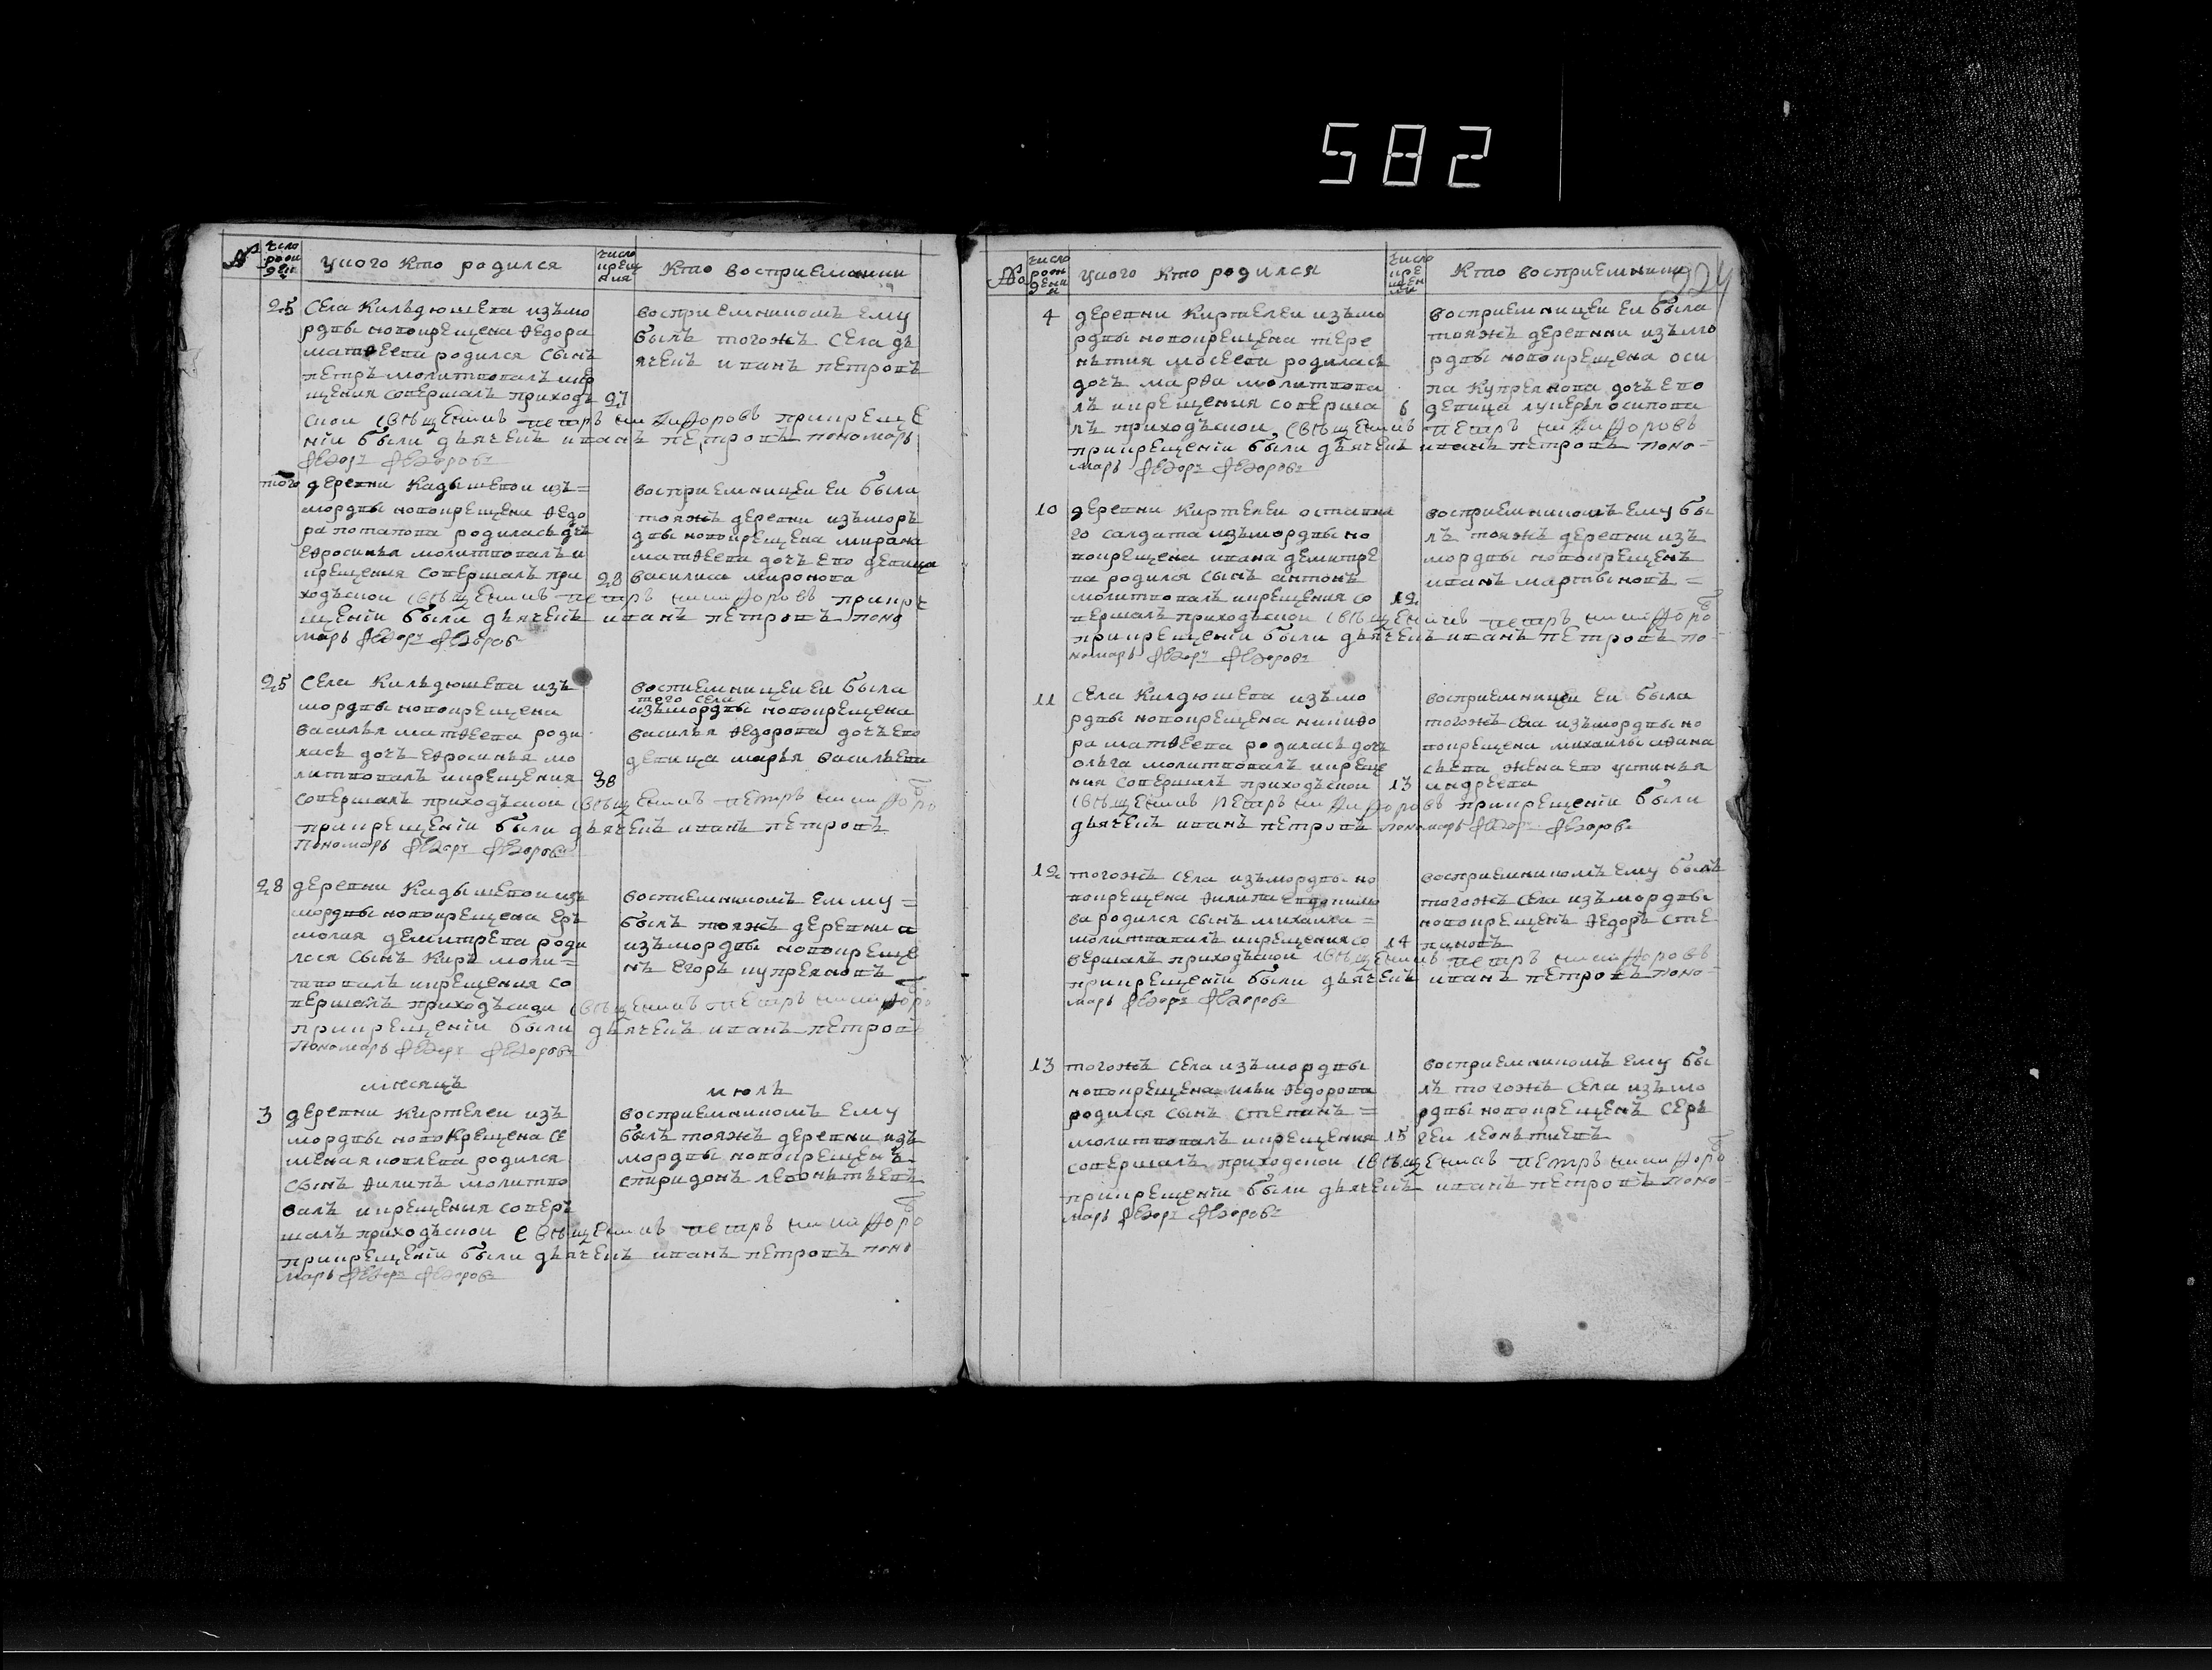 582
№ число рожден у кого кто родился число крещ ния кто восприемники
25 Села Кильдюшева изъмо
рдвы новокрещена Ѳедора
матѳеева родился сынъ
петръ молитвовалъ икр
щения совершалъ приходъ 27
скои свещенникъ петръ никифоровъ прикреще
нiи были дьячекъ иванъ петровъ пономарь
Ѳедоръ Ѳедоровъ
восприемникомъ ему
былъ тогожъ села дь
ячекъ иванъ петровъ
того деревни Кадышевои изъ=
мордвы новокрещена Ѳедо
ра потапова родилась дчъ
еѳросинья молитвовалъ и
крещения совершалъ при 28
ходъскои свещенникъ петръ никифоровъ прикре
щенiи были дьячекъ иванъ петровъ поно
марь Ѳедоръ Ѳедоровъ
восприемницеи еи была
тояжъ деревни изъморъ
двы новокрещена мирона
матѳеева дочъ ево девица
василиса миронова
25 Села Кильдюшева изъ
мордвы новокрещена
василья матѳеева роди
лась дочъ еѳросинья мо
литвовалъ икрещения 30
совершалъ приходъскои свещенникъ петръ никифоро
прикрещенiи были дьячекъ иванъ петровъ
пономарь Ѳедоръ Ѳедоровъ
воспиемницеи еи была
того села
изъмордвы новокрещена
василья Ѳедорова дочъ ево
девица марья васильева
28 деревни Кадышевои изъ
мордвы новокрещена еръ
молая демитрева роди
лося сынъ Киръ моли=
твовалъ икрещения со
вершалъ приходъскои свещенникъ петръ никифоро
прикрещенiи были дьячекъ иванъ петровъ
пономарь Ѳедоръ Ѳедоровъ
воспиемникомъ емму=
былъ тояжъ деревни
изъмордвы новокреще
нъ егоръ купреяновъ
месяцъ июль
3 деревни Киртелеи изъ
мордвы новокрещена се
мена яковлева родился
сынъ Ѳилипъ молитво
валъ икрещения соверъ
шалъ приходъскои свещенникъ петръ никифоро
прикрещенiи были дьячекъ иванъ петровъ поно
марь Ѳедоръ Ѳедоровъ
восприемникомъ ему
былъ тояжъ деревни изъ
мордвы новокрещенъ
спиридонъ леонътьевъ
224
№ число рождения у кого кто родился число крещен кто восприемники
4 деревни Киртелеи изъмо
рдвы новокрещена тере
нътия мосеева родилась
дочъ марѳа молитвова
лъ икрещения соверша 6
лъ приходъскои свещенникъ петръ никифоровъ
прикрещенiи были дьячекъ иванъ петровъ поно=
марь Ѳедоръ Ѳедоровъ
восприемницеи еи была
тояжъ деревни изъмо
рдвы новокрещена оси
па Купреянова дочъ ево
девица лукерья осипова
10 деревни Киртелеи оставно
го салдата изъмордвы но
вокрещена ивана демитре
ва родился сынъ антонъ
молитвовалъ икрещения со 12
вершалъ приходъскои свещенникъ петръ никифоро
прикрещенiи были дьячекъ иванъ петровъ по=
номарь Ѳедоръ Ѳедоровъ
восприемникомъ ему бы
лъ тояжъ деревни изъ
мордвы новокрещенъ
иванъ мартыновъ=
11 Села Килдюшева изъмо
рдвы новокрещена никиѳо
ра матѳеева родилась дочъ
ольга молитвовалъ икреще
ния совершалъ приходъскои 13
свещенникъ петръ никифоровъ прикрещенiи были
дьячекъ иванъ петровъ пономарь Ѳедоръ Ѳедоровъ
восприемницеи еи была
тогожъ села изъмордвы но
вокрещена михаилы аѳана
сьева жена ево устинья
андреева
12 тогожъ села изъмордвы но
вокрещена Ѳилипа евдокимо
ва родился сынъ михаила=
молитвавалъ икрещения со 14
вершалъ приходъскои свещенникъ петръ никифоровъ
прикрещенiи были дьячекъ иванъ петровъ поно=
марь Ѳедоръ Ѳедоровъ
восприемникомъ ему былъ
тогожъ села изъмордвы
новокрещенъ Ѳедоръ сте
пановъ
13 тогожъ села изъмордвы
новокрещена ильи Ѳедорова
родился сынъ степанъ=
молитвовалъ икрещения 15
совершалъ приходскои свещенникъ петръ никифоро
прикрещенiи были дьячекъ иванъ петровъ поно=
марь Ѳедоръ Ѳедоровъ
восприемникомъ ему бы
лъ тогожъ села изъмо
рдвы новокрещенъ серъ
геи леонътиевъ